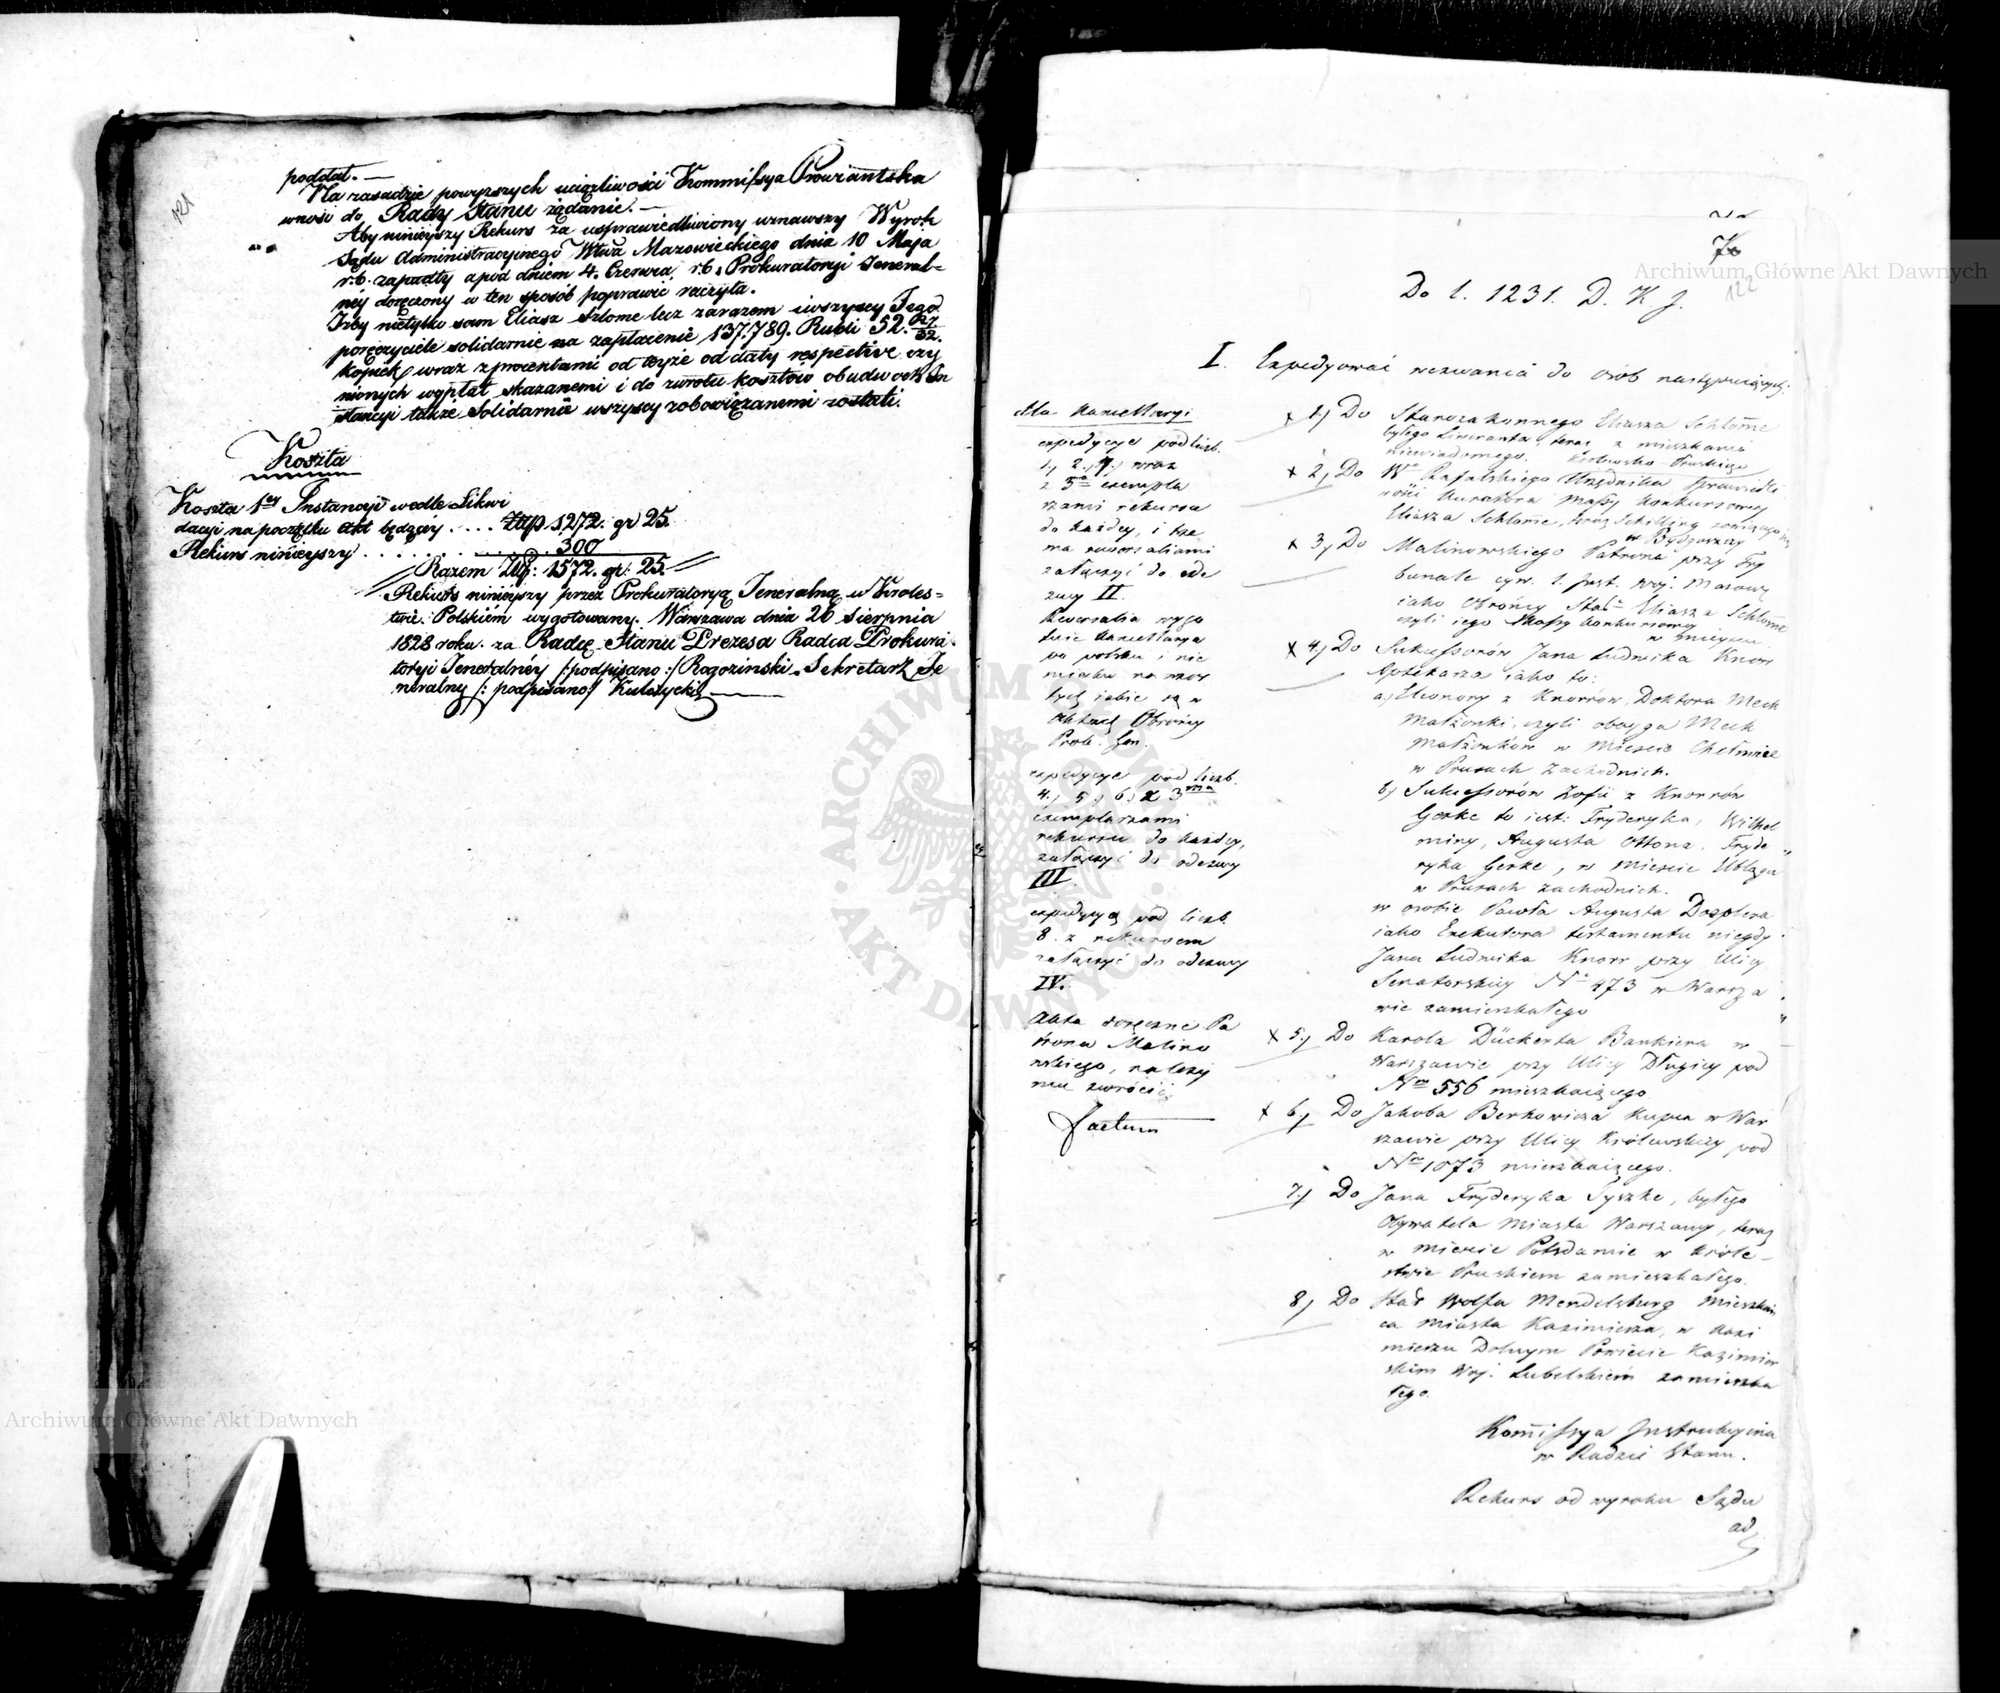 121
poddał. —
Na zasadzie powyższych uciążliwości Kommissya Prowiantska
wnosi do Rady Stanu żądanie. —
Aby niniejszy Rekurs za usprawiedliwiony uznawszy Wyrok
Sądu Administracyjnego Wtwa Mazowieckiego dnia 10 Maja
r. b. zapadły a pod dniem 4. Czerwca r. b. Prokuratoryi Jeneral-
néy doręczony w ten sposób poprawić raczyła.
Iżby nietylko sam Eliasz Szlome lecz zarazem i wszyscy Jego
poręczyciele solidarnie na zapłacenie 137.789. Rubli 52. 27/32.
kopiek wraz z procentami od teyże od daty respective czy
nionych wypłat skazanemi i do zwrotu kosztów obudwóch In
stancyi także Solidarnie wszyscy zobowiązanemi zostali.
Koszta
Koszta 1ey Instancyi wedle Likwi
dacyi na początku akt będącéy .... Złłp. 1,272. gr 25.
Rekurs ninieyszy ........ 300
Razem Złłp: 1572. gr: 25.
Rekurs ninieyszy przez Prokuratoryą Jeneralną w Króles-
twie Polskiém wygotowany. Warszawa dnia 26 Sierpnia
1828 roku. za Radcę Stanu Prezesa Radca Prokura
toryi Jeneralnéy /: podpisano :/ Rogoziński. Sekretarz Je
neralny /: podpisano / Kulczycki
122
Do l. 1231. D. K. J.
I. Expedyować wezwania do osób następujących:
Dla Kancellaryi
expedycye pod liczb.
1, 2, 7, wraz
z 3ma exempla
rzami rekursu
do każdey, i
ma rewersaliami
załączyć do ode
zwy II.
Rewersalia wygo
tuie Kancellarya
po polsku i nie
miecku na wzór
tych iakie są w
aktach Obrońcy
Prok. Gen.
expedycye pod liczb.
4., 5., 6, z 3ma
exemplarzami
rekursu do każdey,
załączyć do odezwy
III.
expedycyą pod liczb.
8. z rekursem
załączyć do odezwy
IV.
Akta ręczne Pa
trona Malino
wskiego, należy
mu zwrócić
factum
x 1) Do Starozakonnego Eliasza Schlome
byłego Liweranta teraz z mieszkania
niewiadomego.
x 2, Do W° Rafalskiego Urzędnika Sprawiedli
wości Kuratora Massy konkursowey
Eliasza Schlome,
w Bydgoszczy
x 3, Do Malinowskiego Patrona przy Try
bunale cyw. 1. Inst. woj. Mazow:
iako Obrońcy Staro Eliasza Schlome
czyli iego Massy konkursowey
x 4, Do Sukcessorów Jana Ludwika Knorr
Aptekarza iako to:
a, Eleonory z Knorrów, Doktora Meck
Małżonki, czyli oboyga Meck
małżonków w Mieście Chełmnie
w Prusach Zachodnich.
b, Sukcessorów Zofii z Knorrów
Gerke to iest: Fryderyka, Wilhel
miny, Augusta Ottona, Fryde
ryka Gerke, w mieście Elblągu
w Prusach zachodnich.
w osobie Pawła Augusta
iako Exekutora testamentu niegdy
Jana Ludwika Knorr przy Ulicy
Senatorskiey No 473 w Warsza
wie zamieszkałego
x 5, Do Karola Dückerta Bankiera w
Warszawie przy Ulicy Długiey pod
Nrm 556 mieszkaiącego
x 6, Do Jakóba Berkowicza Kupca w War
szawie przy Ulicy Królewskiey pod
Nrm 1073 mieszkaiącego.
7, Do Jana Fryderyka Tyszke, byłego
Obywatela Miasta Warszawy, teraz
w mieście Potsdamie w Króle-
stwie Pruskiem zamieszkałego.
8, Do Star Wolfa Mendelsburg Mieszkań
ca Miasta Kazimierza, w Kazi
mierzu Dolnym Powiecie Kazimier
skim Woj. Lubelskiém zamieszka
łego.
Kommissya Instrukcyina
w Radzie Stanu.
Rekurs od wyroku Sądu
ad
Archiwum Główne Akt Dawnych
Archiwum Główne Akt Dawnych
ARCHIWUM GŁÓWNE AKT DAWNYCH